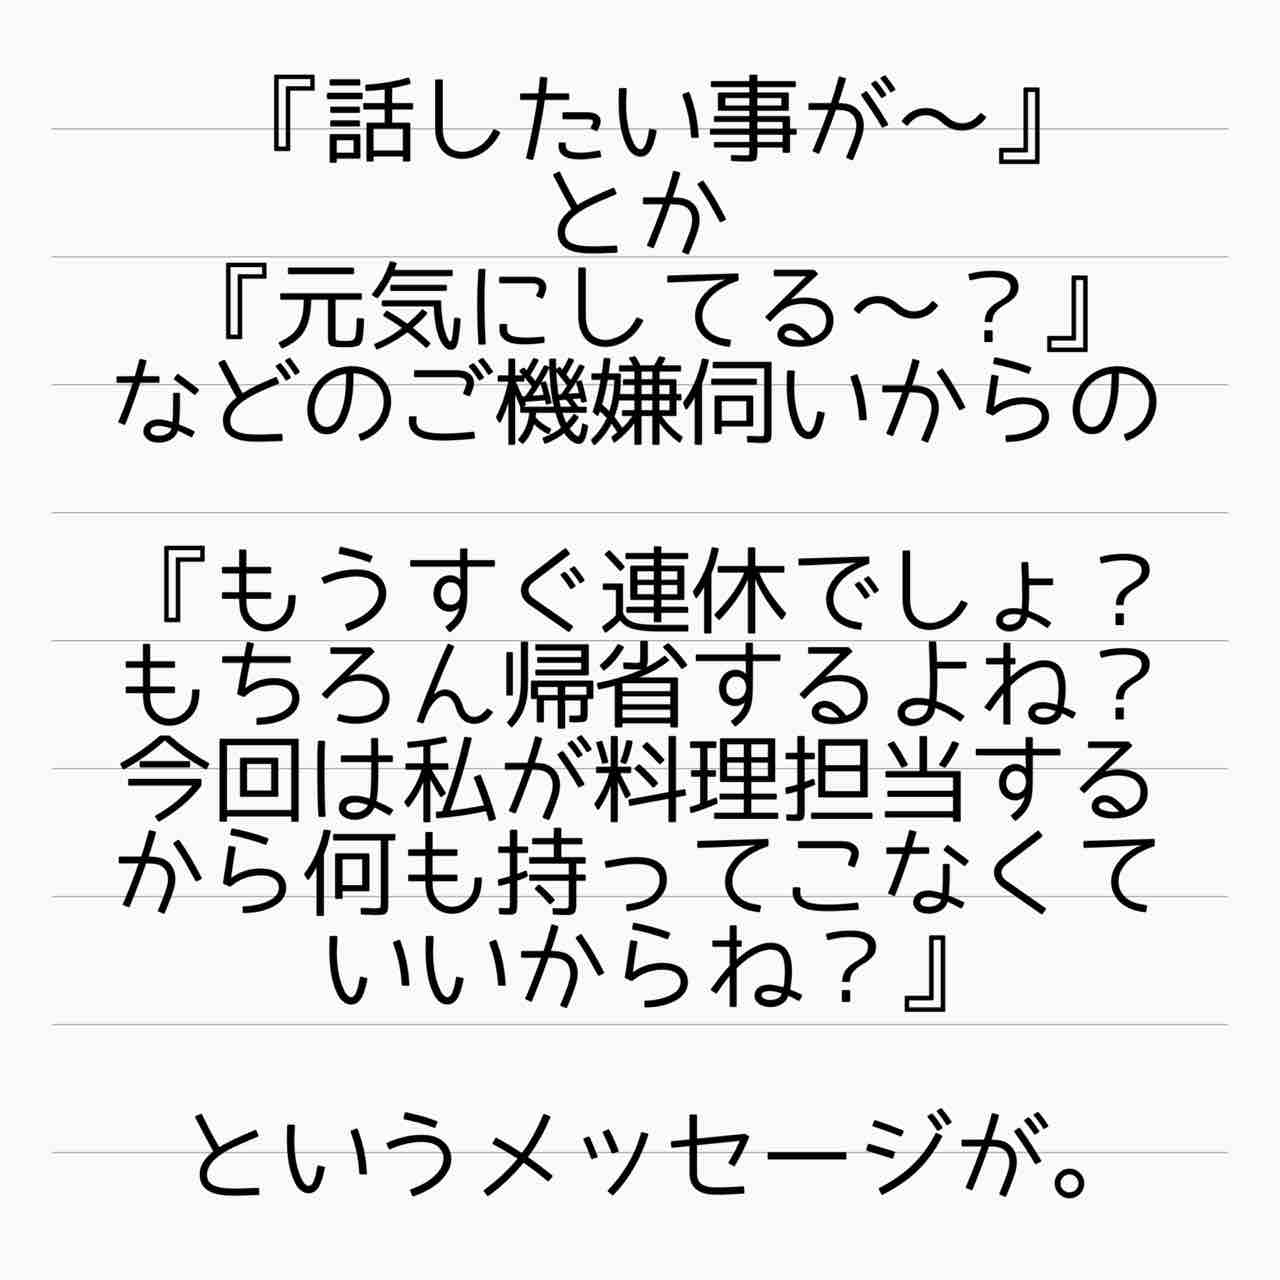 『話したい事が～』
とか
『元気にしてる～？』
などのご機嫌伺いからの
『もうすぐ連休でしょ？
もちろん帰省するよね？
今回は私が料理担当する
から何も持ってこなくて
いいからね？』
というメッセージが。